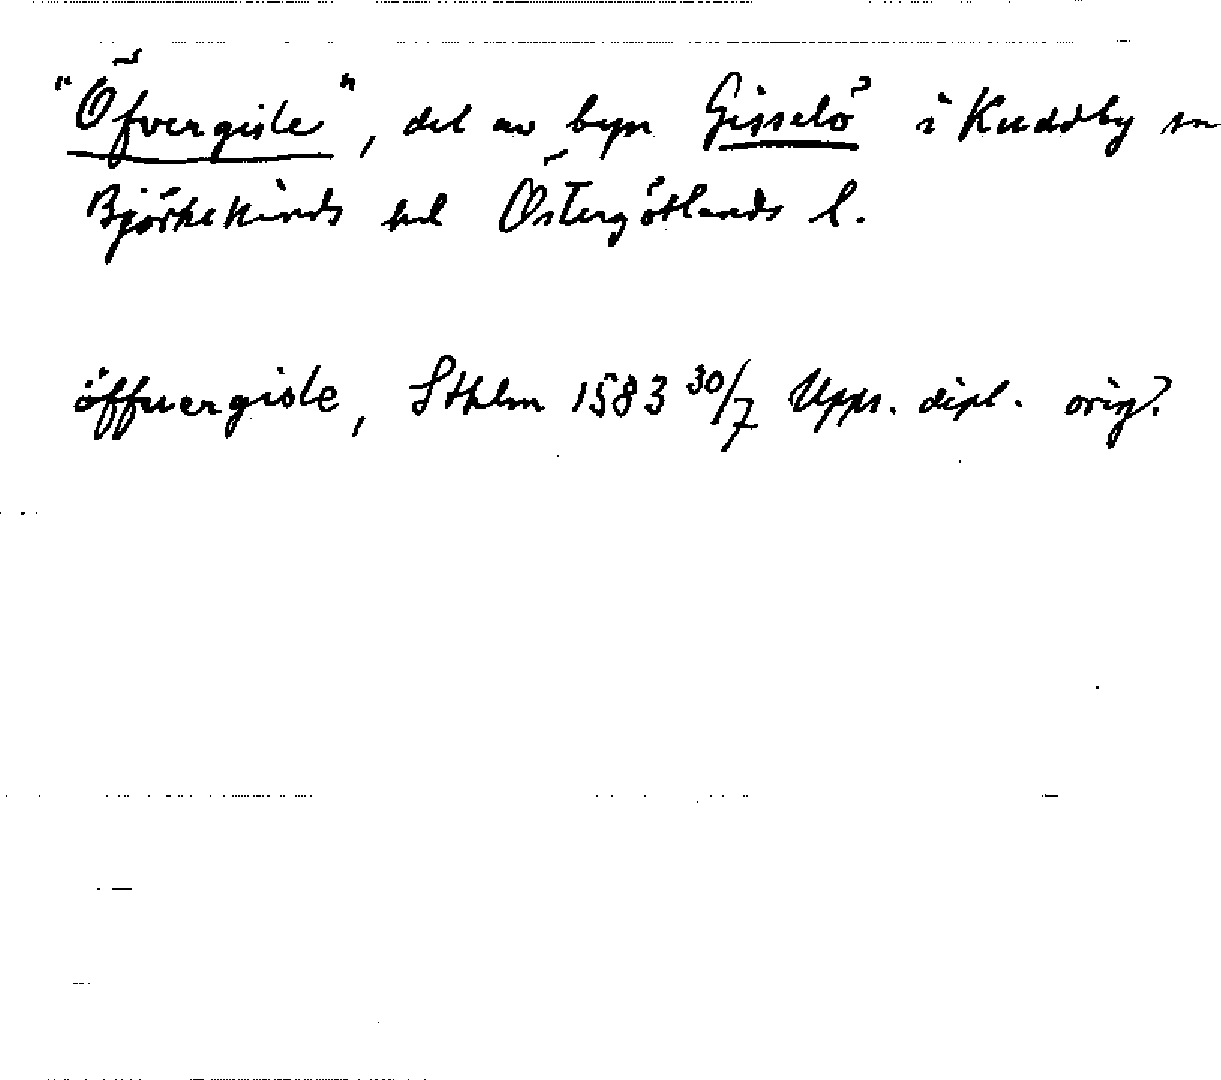 "Öfvergisle", del av byn Gisselö i Kuddby sn
Björkekinds hd Östergötlands l.
öffuergisle, Sthlm 1583 30/7 Upps. dipl. orig.